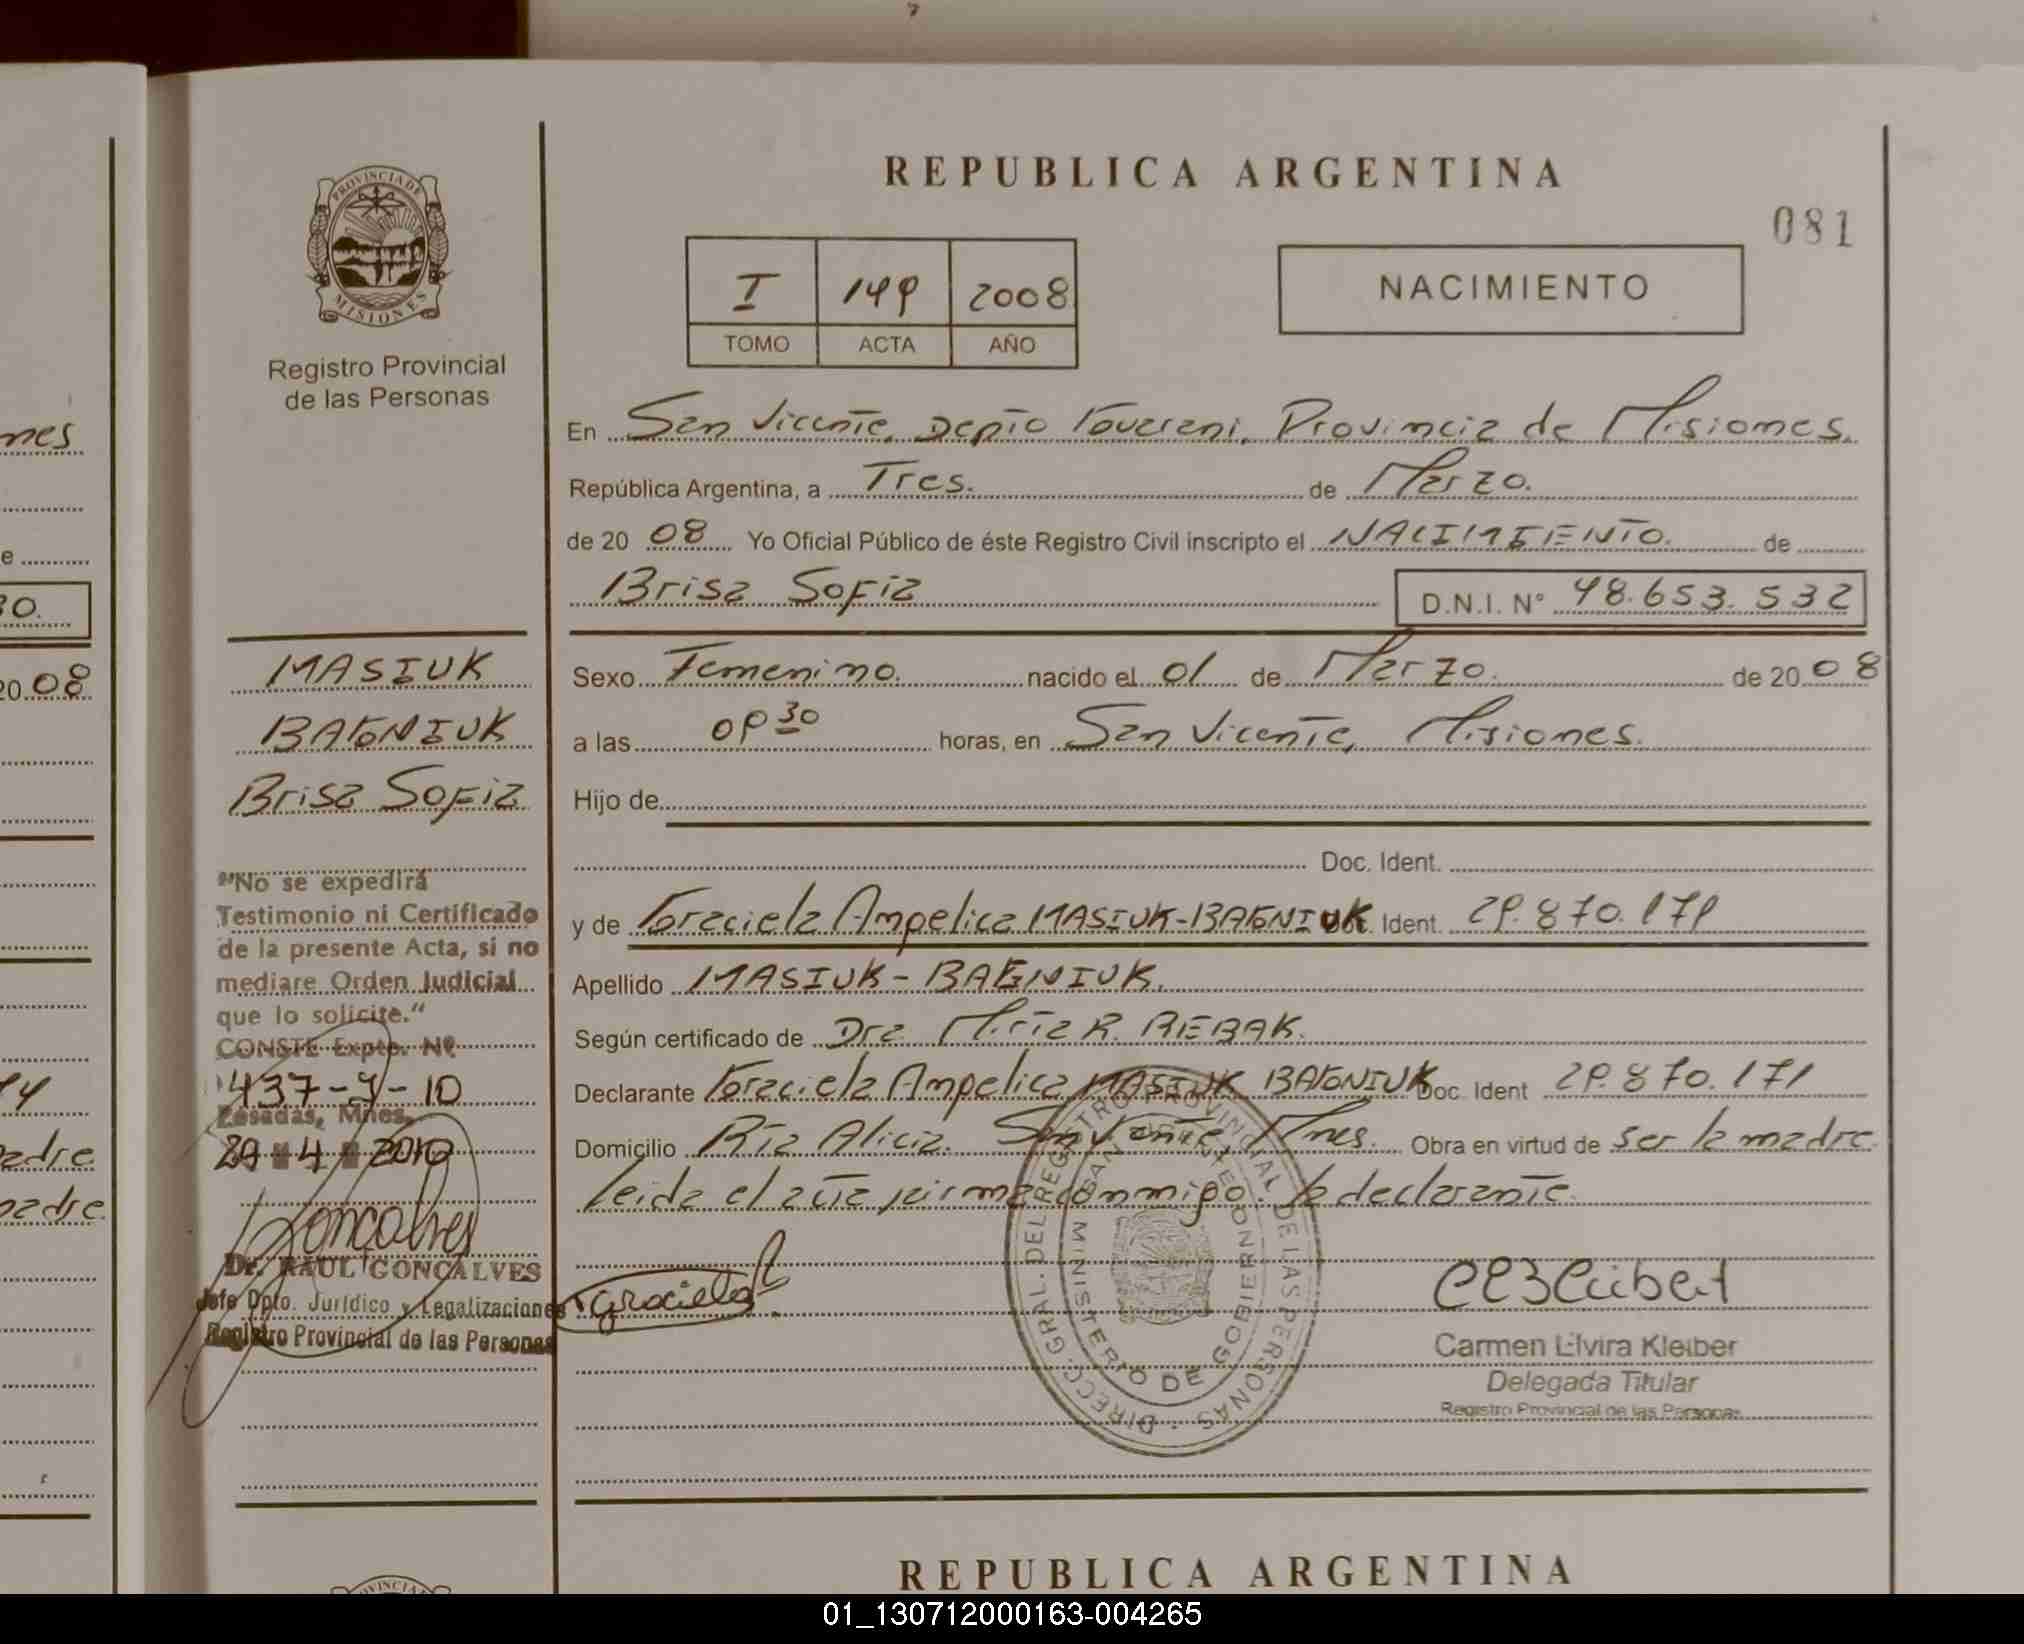 REPUBLICA ARGENTINA
081
PROVINCIA DE MISIONES
Registro Provincial
de las Personas
I 149 2008
TOMO ACTA AÑO
NACIMIENTO
En San Vicente, Depto Guarani, Provincia de Misiones.
República Argentina, a Tres. de Marzo.
de 20 08 Yo Oficial Público de éste Registro Civil inscripto el NACIMIENTO. de
Brisa Sofia D.N.I. N° 48.653.532
Sexo Femenino. nacido el 01 de Marzo. de 20 08
a las 09 30 horas, en San Vicente, Misiones.
Hijo de
Doc. Ident.
y de Graciela Angelica MASIUK-BAGNIUK Doc. Ident. 29.870.171
Apellido MASIUK - BAGNIUK.
Según certificado de Dra. Mirta R. REBAK.
Declarante Graciela Angelica MASIUK BAGNIUK Doc. Ident 29.870.171
Domicilio Rta Alicia. San Vicente Mnes. Obra en virtud de ser la madre
leida el acta firma conmigo. la declarante.
Graciela
Carmen Elvira Kleiber
Delegada Titular
Registro Provincial de las Personas
DIRECC. GRAL. DEL REGISTRO PROVINCIAL DE LAS PERSONAS
MINISTERIO DE GOBIERNO
SAN VICENTE
MASIUK
BAGNIUK
Brisa Sofia
"No se expedirá
Testimonio ni Certificado
de la presente Acta, si no
mediare Orden Judicial
que lo solicite."
CONSTE Expte. Nº
437-J-10
Posadas, Mnes.
29 4 2010
Goncalves
Dr. RAUL GONCALVES
Jefe Dpto. Jurídico y Legalizaciones
Registro Provincial de las Personas
nes
e
30.
20 08
adre
madre
REPUBLICA ARGENTINA
PROVINCIA
01_130712000163-004265